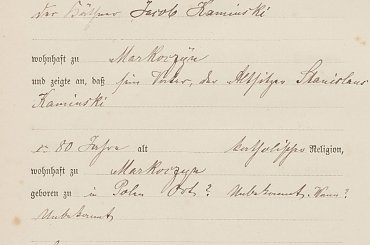 der Käthner Jacob Kaminski
wohnhaft zu Markoczyn
und zeigte an, daß sein Vater, der Altsitzer Stanislaus
Kaminski
80 Jahre alt katholischer Religion,
wohnhaft zu Markoczyn
geboren zu in Polen Ort? Unbekannt. Wann?
Unbekannt